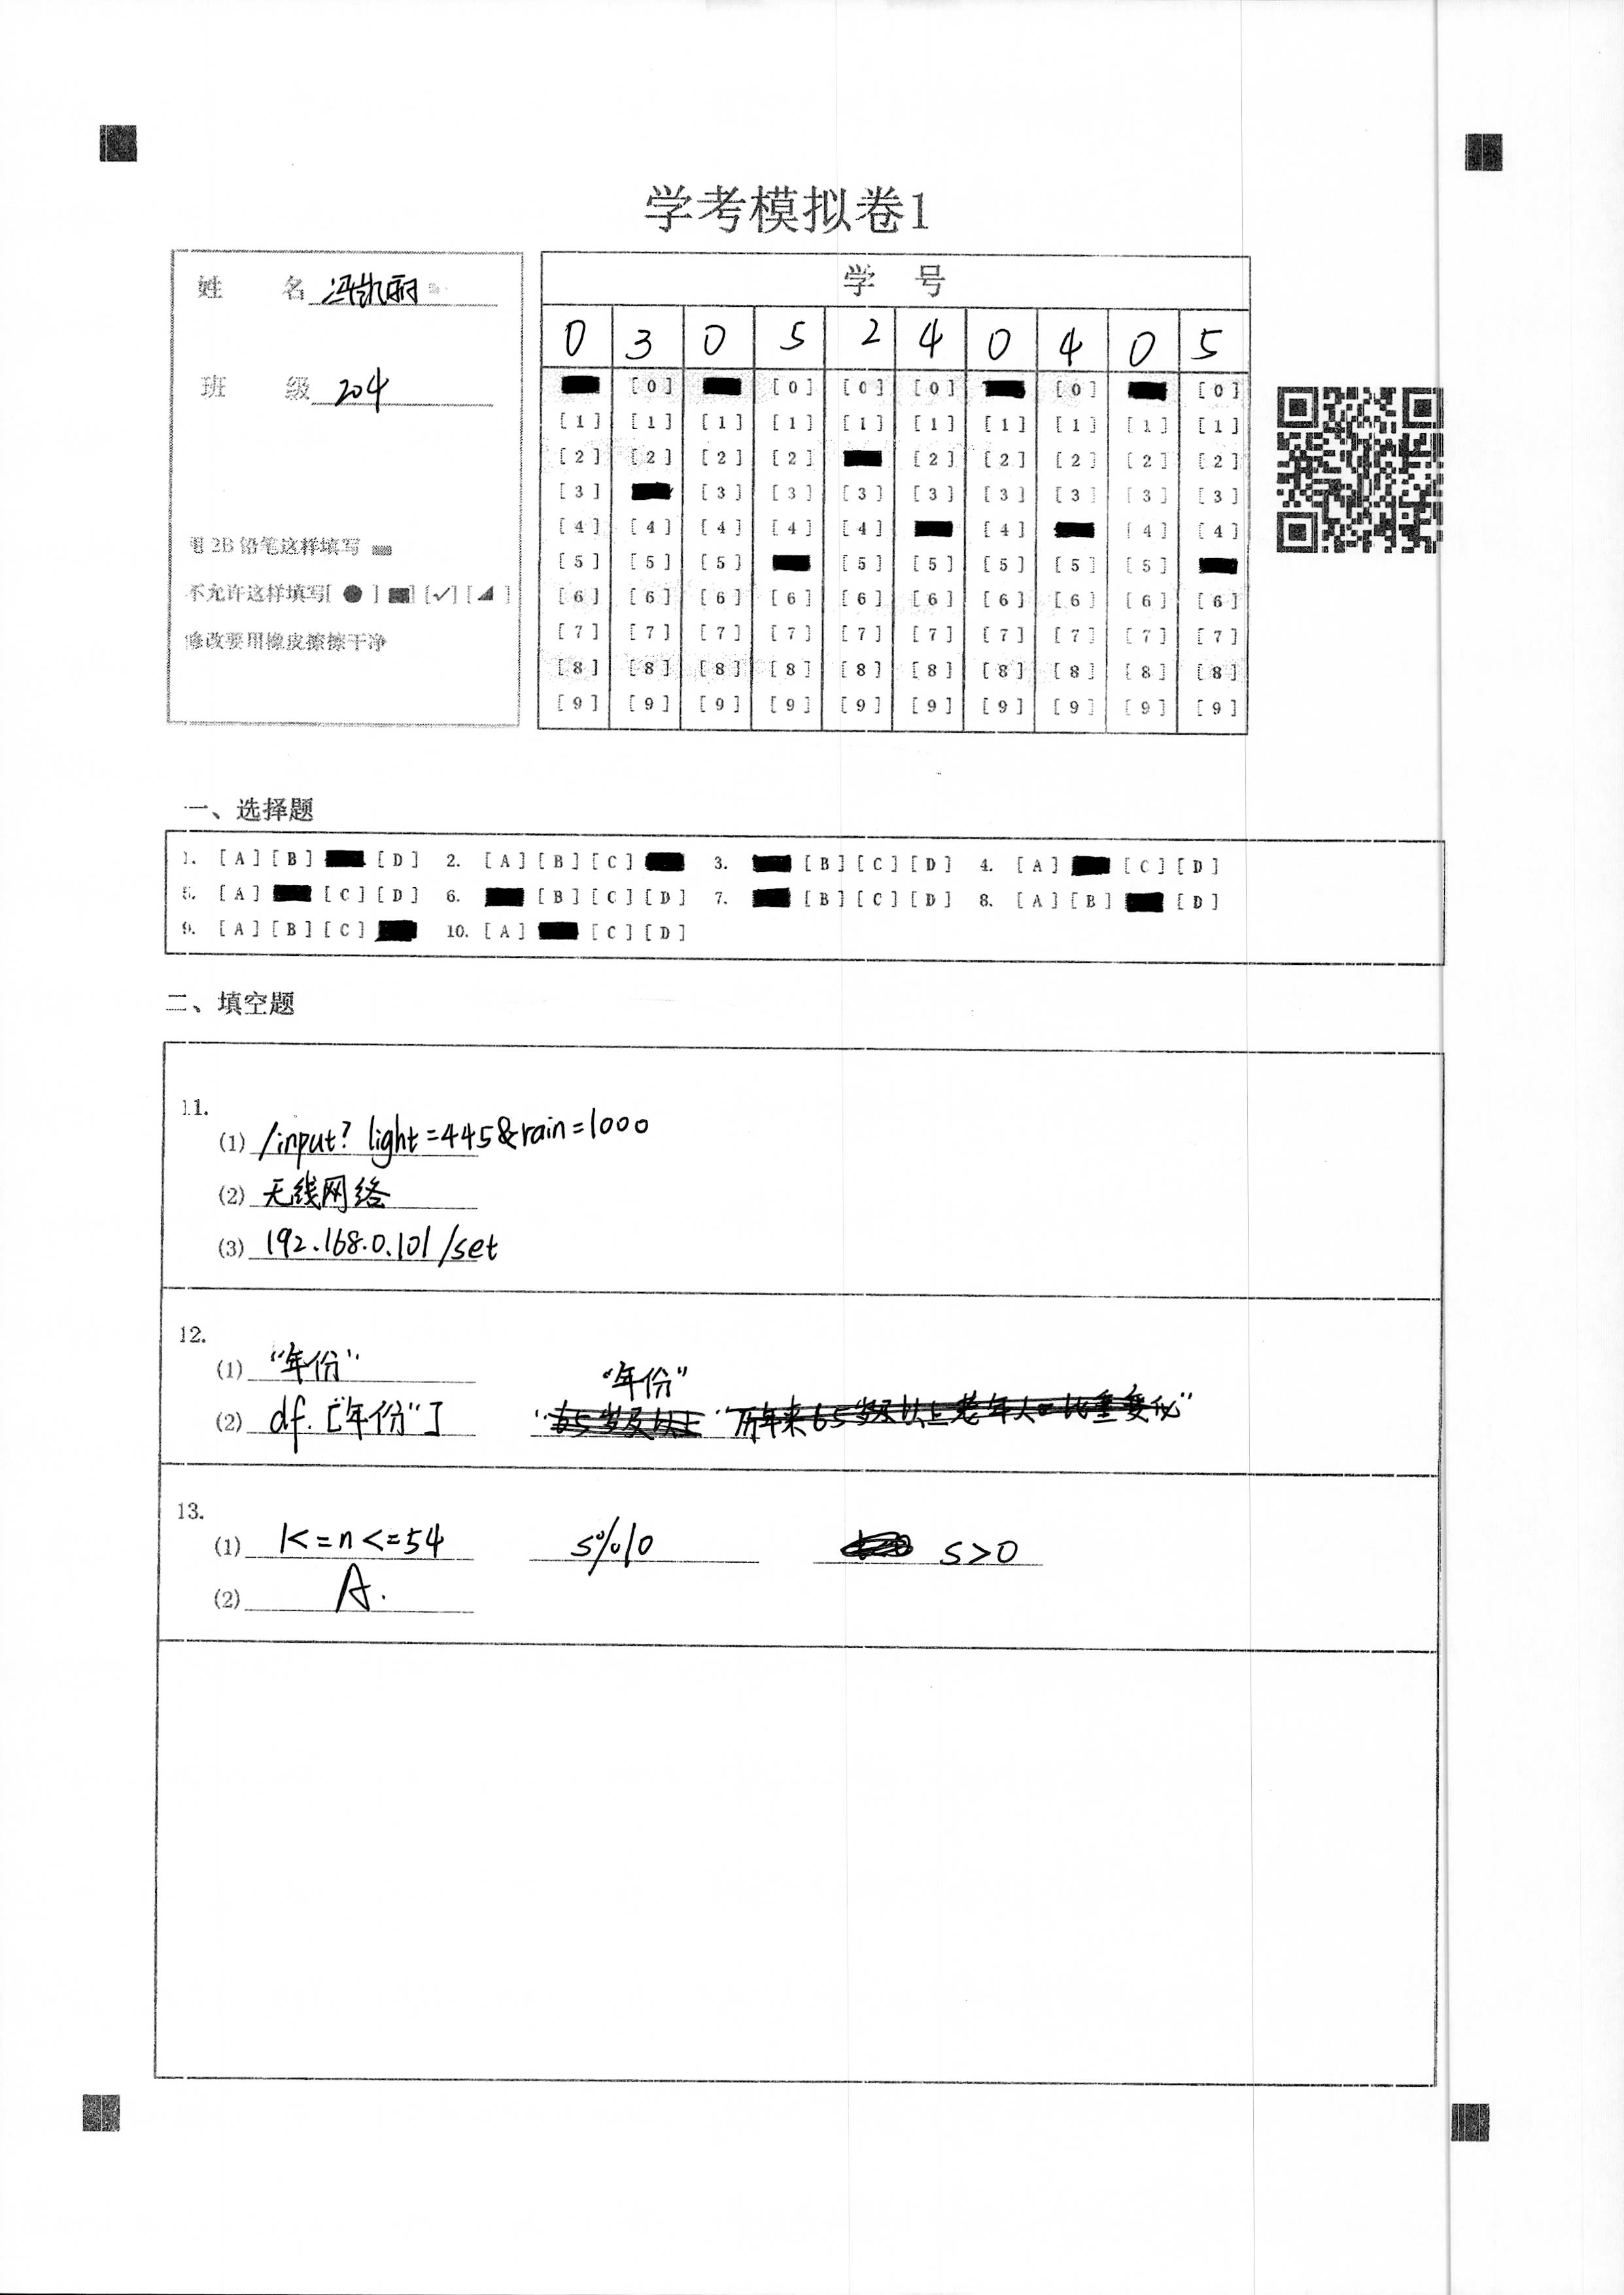 学考模拟卷1
姓 名 冯凯丽
班 级 204
用 2B 铅笔这样填写
不允许这样填写[ ● ] [✓] [ ]
修改要用橡皮擦擦干净
学 号
0 3 0 5 2 4 0 4 0 5
[0] [0] [0] [0] [0] [0]
[1] [1] [1] [1] [1] [1] [1] [1] [1] [1]
[2] [2] [2] [2] [2] [2] [2] [2] [2]
[3] [3] [3] [3] [3] [3] [3] [3] [3]
[4] [4] [4] [4] [4] [4] [4] [4]
[5] [5] [5] [5] [5] [5] [5] [5]
[6] [6] [6] [6] [6] [6] [6] [6] [6] [6]
[7] [7] [7] [7] [7] [7] [7] [7] [7] [7]
[8] [8] [8] [8] [8] [8] [8] [8] [8] [8]
[9] [9] [9] [9] [9] [9] [9] [9] [9] [9]
一、选择题
1. [A] [B] [D] 2. [A] [B] [C] 3. [B] [C] [D] 4. [A] [C] [D]
5. [A] [C] [D] 6. [B] [C] [D] 7. [B] [C] [D] 8. [A] [B] [D]
9. [A] [B] [C] 10. [A] [C] [D]
二、填空题
11.
(1) /input? light=445&rain=1000
(2) 无线网络
(3) 192.168.0.101/set
12.
(1) "年份"
"年份"
(2) df.["年份"] "65岁及以上 "历年来65岁及以上老年人口比重变化"
13.
(1) k=n<=54 s%10 s>0
(2) A.